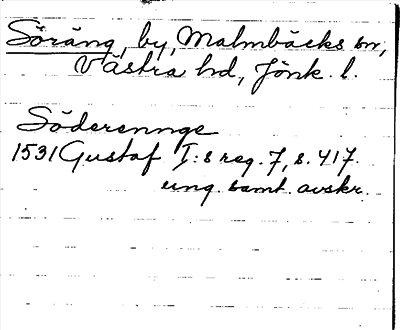 Söräng, by, Malmbäcks sn,
Västra hd, Jönk. l.
Söderennge
1531 Gustaf I:s reg. 7, s. 417.
ung. samt. avskr.